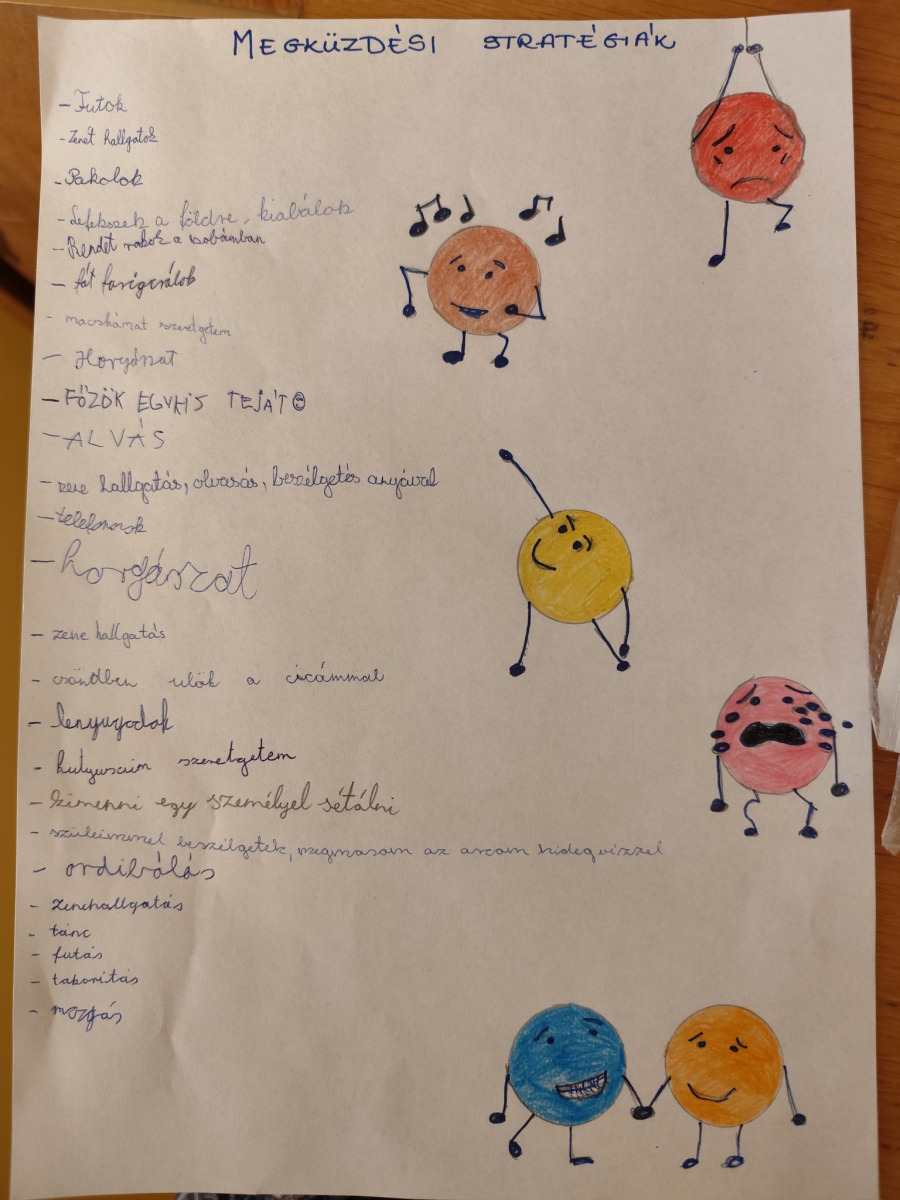 MEGKÜZDÉSI STRATÉGIÁK
- Futok
- Zenét hallgatok
- Pakolok
- Lefekszek a földre, kiabálok
- Rendet rakok a szobámban
- fát farigcsálok
- macskámat szeretgetem
- Horgászat
- FŐZÖK EGY KIS TEJÁT ☺
- ALVÁS
- zene hallgatás, olvasás, beszélgetés anyával
- telefonozok
- horgászat
- zene hallgatás
- csöndben ülök a cicámmal
- lenyugodok
- kutyusaim szeretgetem
- kimenni egy személyel sétálni
- szüleimmel beszélgetek, megmosom az arcom hidegvízzel
- ordibálás
- Zenehallgatás
- tánc
- futás
- takaritás
- mozgás